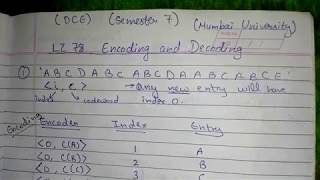 (DCE) (Semester 7) (Mumbai University)
LZ 78 Encoding and Decoding
① 'ABCDABCABCDAABCABCE'
<i, c> → any new entry will have
Index codeword index 0.
Encoding
Encoder Index Entry
<0, C(A)> 1 A
<0, C(B)> 2 B
<0, C(C)> 3 C